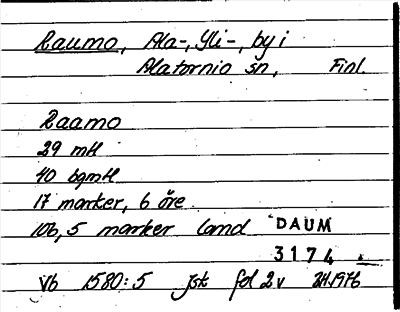 Raumo, Ala-, Yli-, by i
Alatornio sn, Finl.
Raamo
29 mtl
40 bgmtl
17 marker, 6 öre
106,5 marker land DAUM
3174
Vb 1580:5 jsk fol 2v